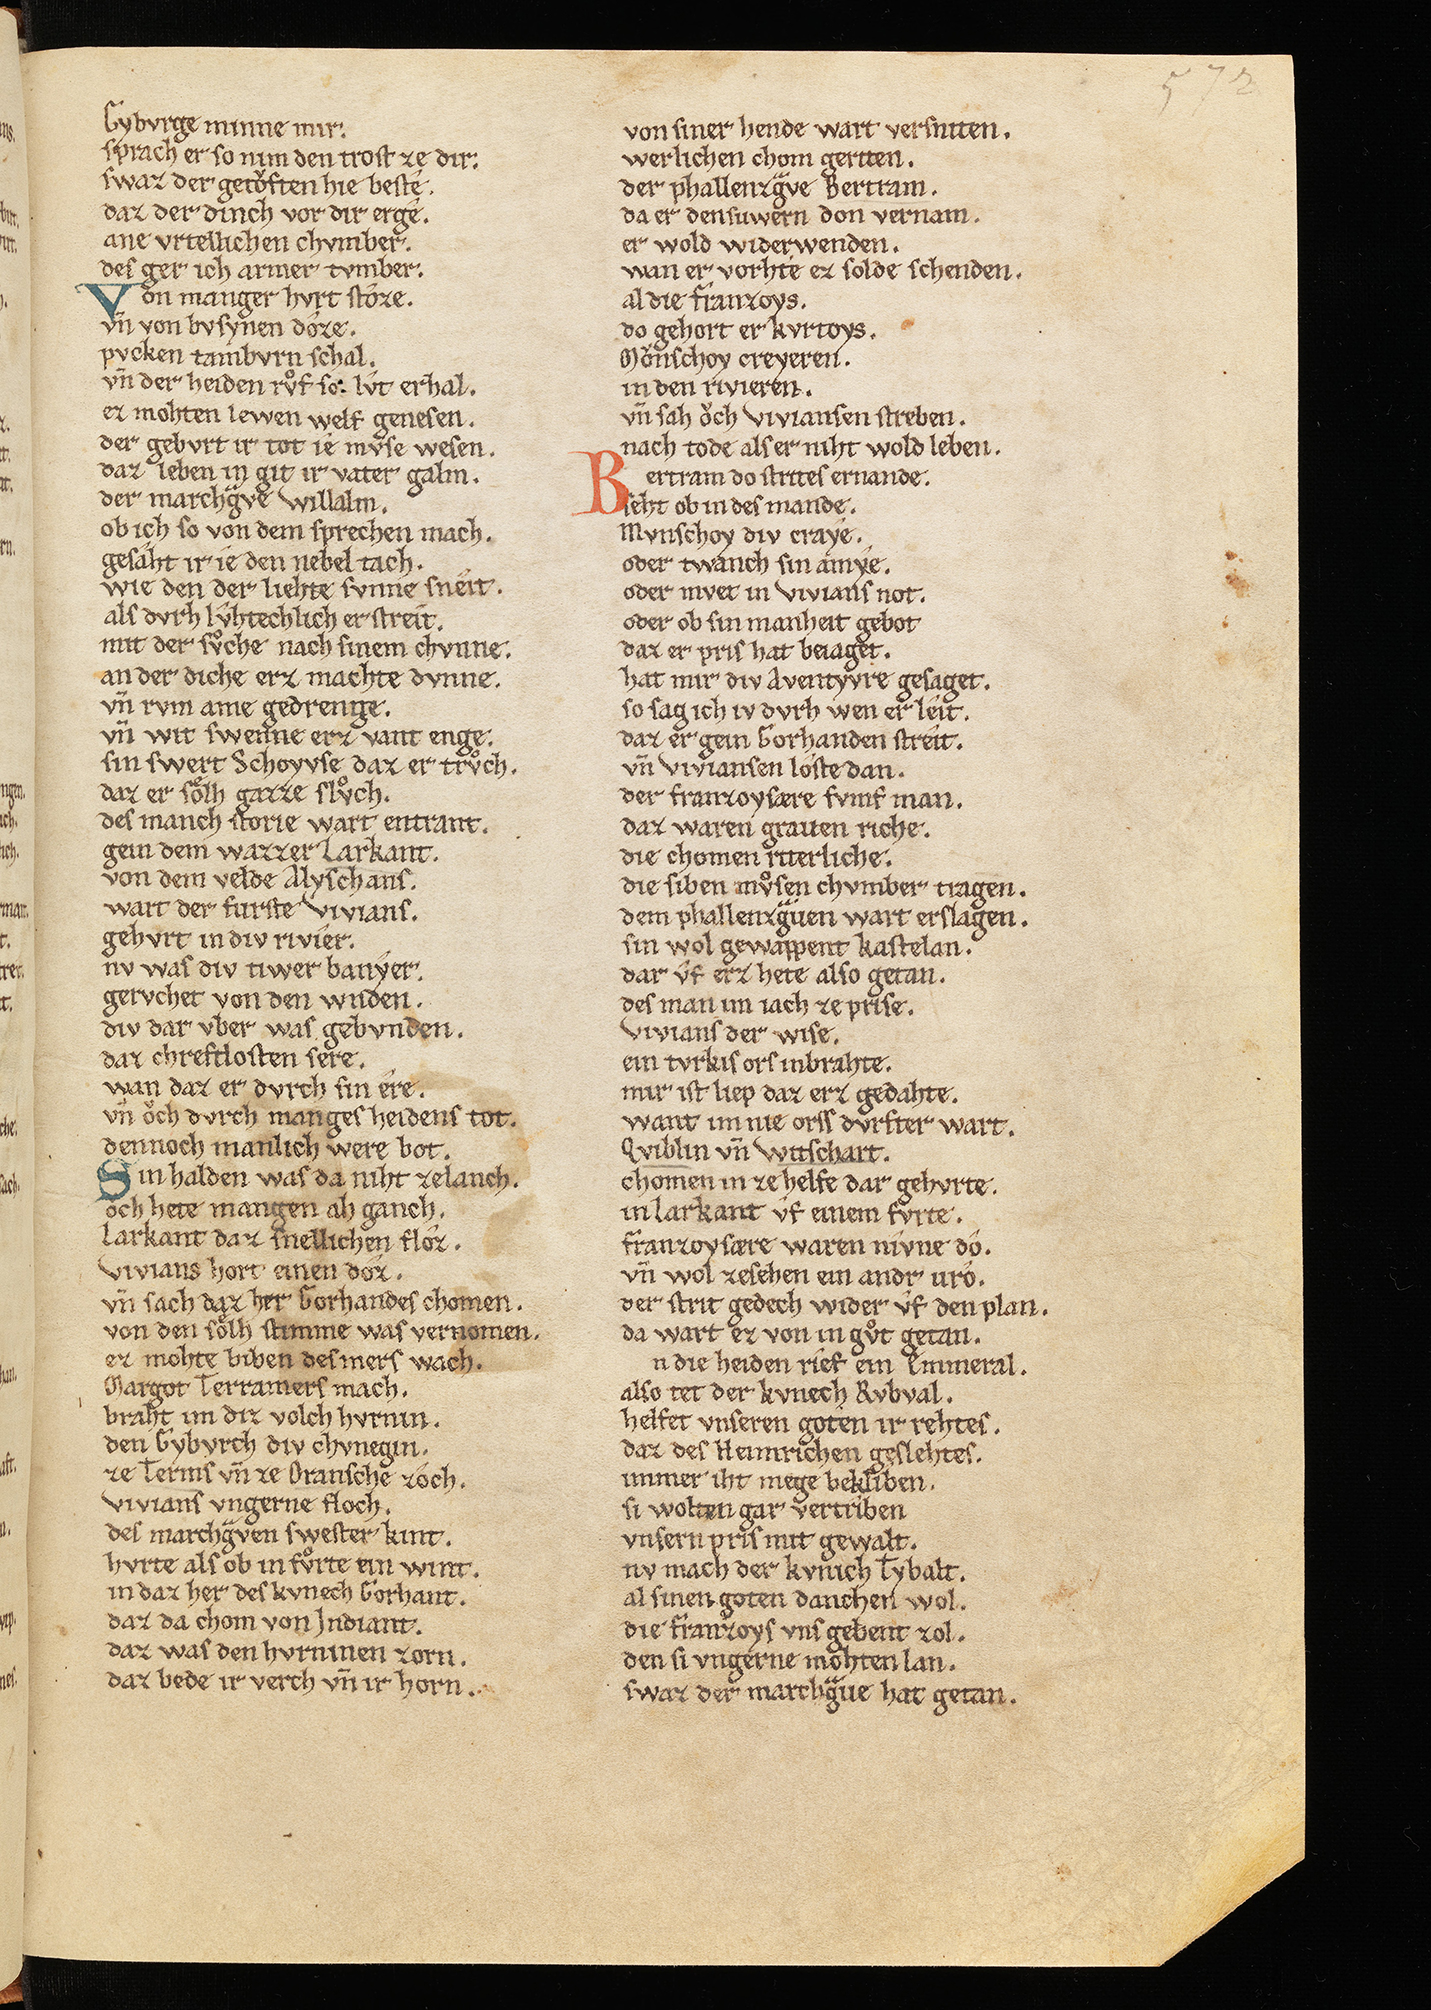 572
Gybvrge minne mir.
sprach er so nim den trost ze dir.
swaz der getoͮften hie beste.
daz der dinch vor dir erge.
ane vrteillichen chvmber.
des ger ich armer tvmber.
Von manger hvrt stoze.
vn̄ von bvsynen doze.
pvcken tambvrn schal.
vn̄ der heiden rvͦf so lvt erhal.
ez mohten lewen welf genesen.
der gebvrt ir tot ie mvͦse wesen.
daz leben in git ir vater galm.
der marchgͣve Willalm.
ob ich so von dem sprechen mach.
gesaht ir ie den nebel tach.
wie den der liehte svnne sneit.
als dvrh lvhtechlich er streit.
mit der svͦche nach sinem chvnne.
an der diche erz machte dvnne.
vn̄ rvm ame gedrenge.
vn̄ wit swenne erz vant enge.
sin swert Schoyvse daz er trvͦch.
daz er soͤlh gazze slvͦch.
des manch storie wart entrant.
gein dem wazzer Larkant.
von dem velde Alyschans.
wart der furste Vivians.
gehvrt in div rivier.
nv was div tiwer banyer.
gervchet von den wnden.
div dar vber was gebvnden.
daz chreftlosten sere.
wan daz er dvrch sin ere.
vn̄ oͮch dvrch manges heidens tot.
dennoch manlich were bot.
Sin halden was da niht zelanch.
och hete mangen ab ganch.
Larkant daz snellichen floz.
Vivians hort einen doz.
vn̄ sach daz her Gorhandes chomen.
von den soͤlh stimme was vernomen.
ez mohte biben des mers wach.
Margot Terramers mach.
braht im diz volch hvrnin.
den Gybvrch div chvnegin.
ze Termis vn̄ ze Oransche zoch.
Vivians vngerne floch.
des marchgͣven swester kint.
hvrte als ob in fvͦrte ein wint.
in daz her des kvnech Gorhant.
daz da chom von Jndiant.
daz was den hvrninen zorn.
daz bede ir verch vn̄ ir horn.
von siner hende wart versniten.
werlichen chom geriten.
der phallenzgͣve Bertram.
da er den suwern don vernam.
er wold widerwenden.
wan er vorhte ez solde schenden.
al die franzoys.
do gehort er kvrtoys.
Moͮnschoy creyeren.
in den rivieren.
vn̄ sah oͮch Viviansen streben.
nach tode als er niht wold leben.
Bertram do strites ernande.
seht ob in des mande.
Mvnschoy div craye.
oder twanch sin amye.
oder mvet in Vivians not.
oder ob sin manheit gebot
daz er pris hat beiaget.
hat mir div Aventyvre gesaget.
so sag ich iv dvrh wen er leit.
daz er gein Gorhanden streit.
vn̄ Viviansen loste dan.
der franzoysære fvmf man.
daz waren grauen riche.
die chomen riterliche.
die siben mvͦsen chvmber tragen.
dem phallenzgͣuen wart erslagen.
sin wol gewappent kastelan.
dar vf erz hete also getan.
des man im iach ze prise.
Vivians der wise.
ein tvrkis ors inbrahte.
mir ist liep daz erz gedahte.
want im nie orss dvrfter wart.
Qviblin vn̄ Witschart.
chomen in ze helfe dar gehvrte.
in Larkant vf einem fvrte.
franzoysære waren nivne do.
vn̄ wol zesehen ein andr vro.
der strit gedech wider vf den plan.
da wart ez von in gvͦt getan.
n die heiden rief ein Emmeral.
also tet der kvnech Rvbval.
helfet vnseren goten ir rehtes.
daz des Heimrichen geslehtes.
immer iht mege bekliben.
si wolten gar vertriben
vnsern pris mit gewalt.
nv mach der kvnich Tybalt.
al sinen goten danchen wol.
die franzoys vns gebent zol.
den si vngerne mohten lan.
swaz der marchgͣue hat getan.